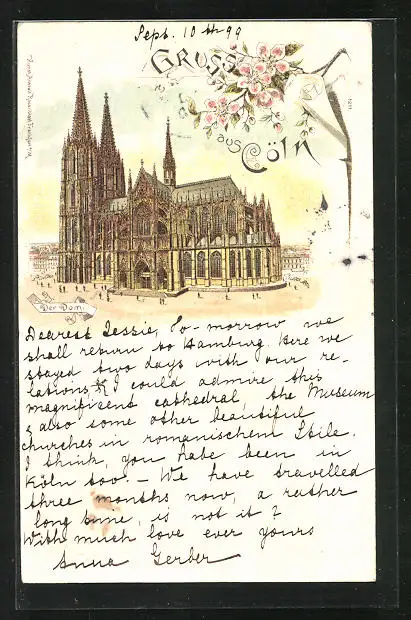 Sept. 10th 99
GRUSS
aus CÖLN
Der Dom.
Dearest Jessie, To-morrow we
shall return to Hamburg. Here we
stayed two days with our re-
lations, & I could admire this
magnificent cathedral, the Museum
& also some other beautiful
churches in romanischem Stile.
I think, you habe been in
Köln too. – We have travelled
three months now, a rather
long time, is not it?
With much love ever yours
Anna Gerber